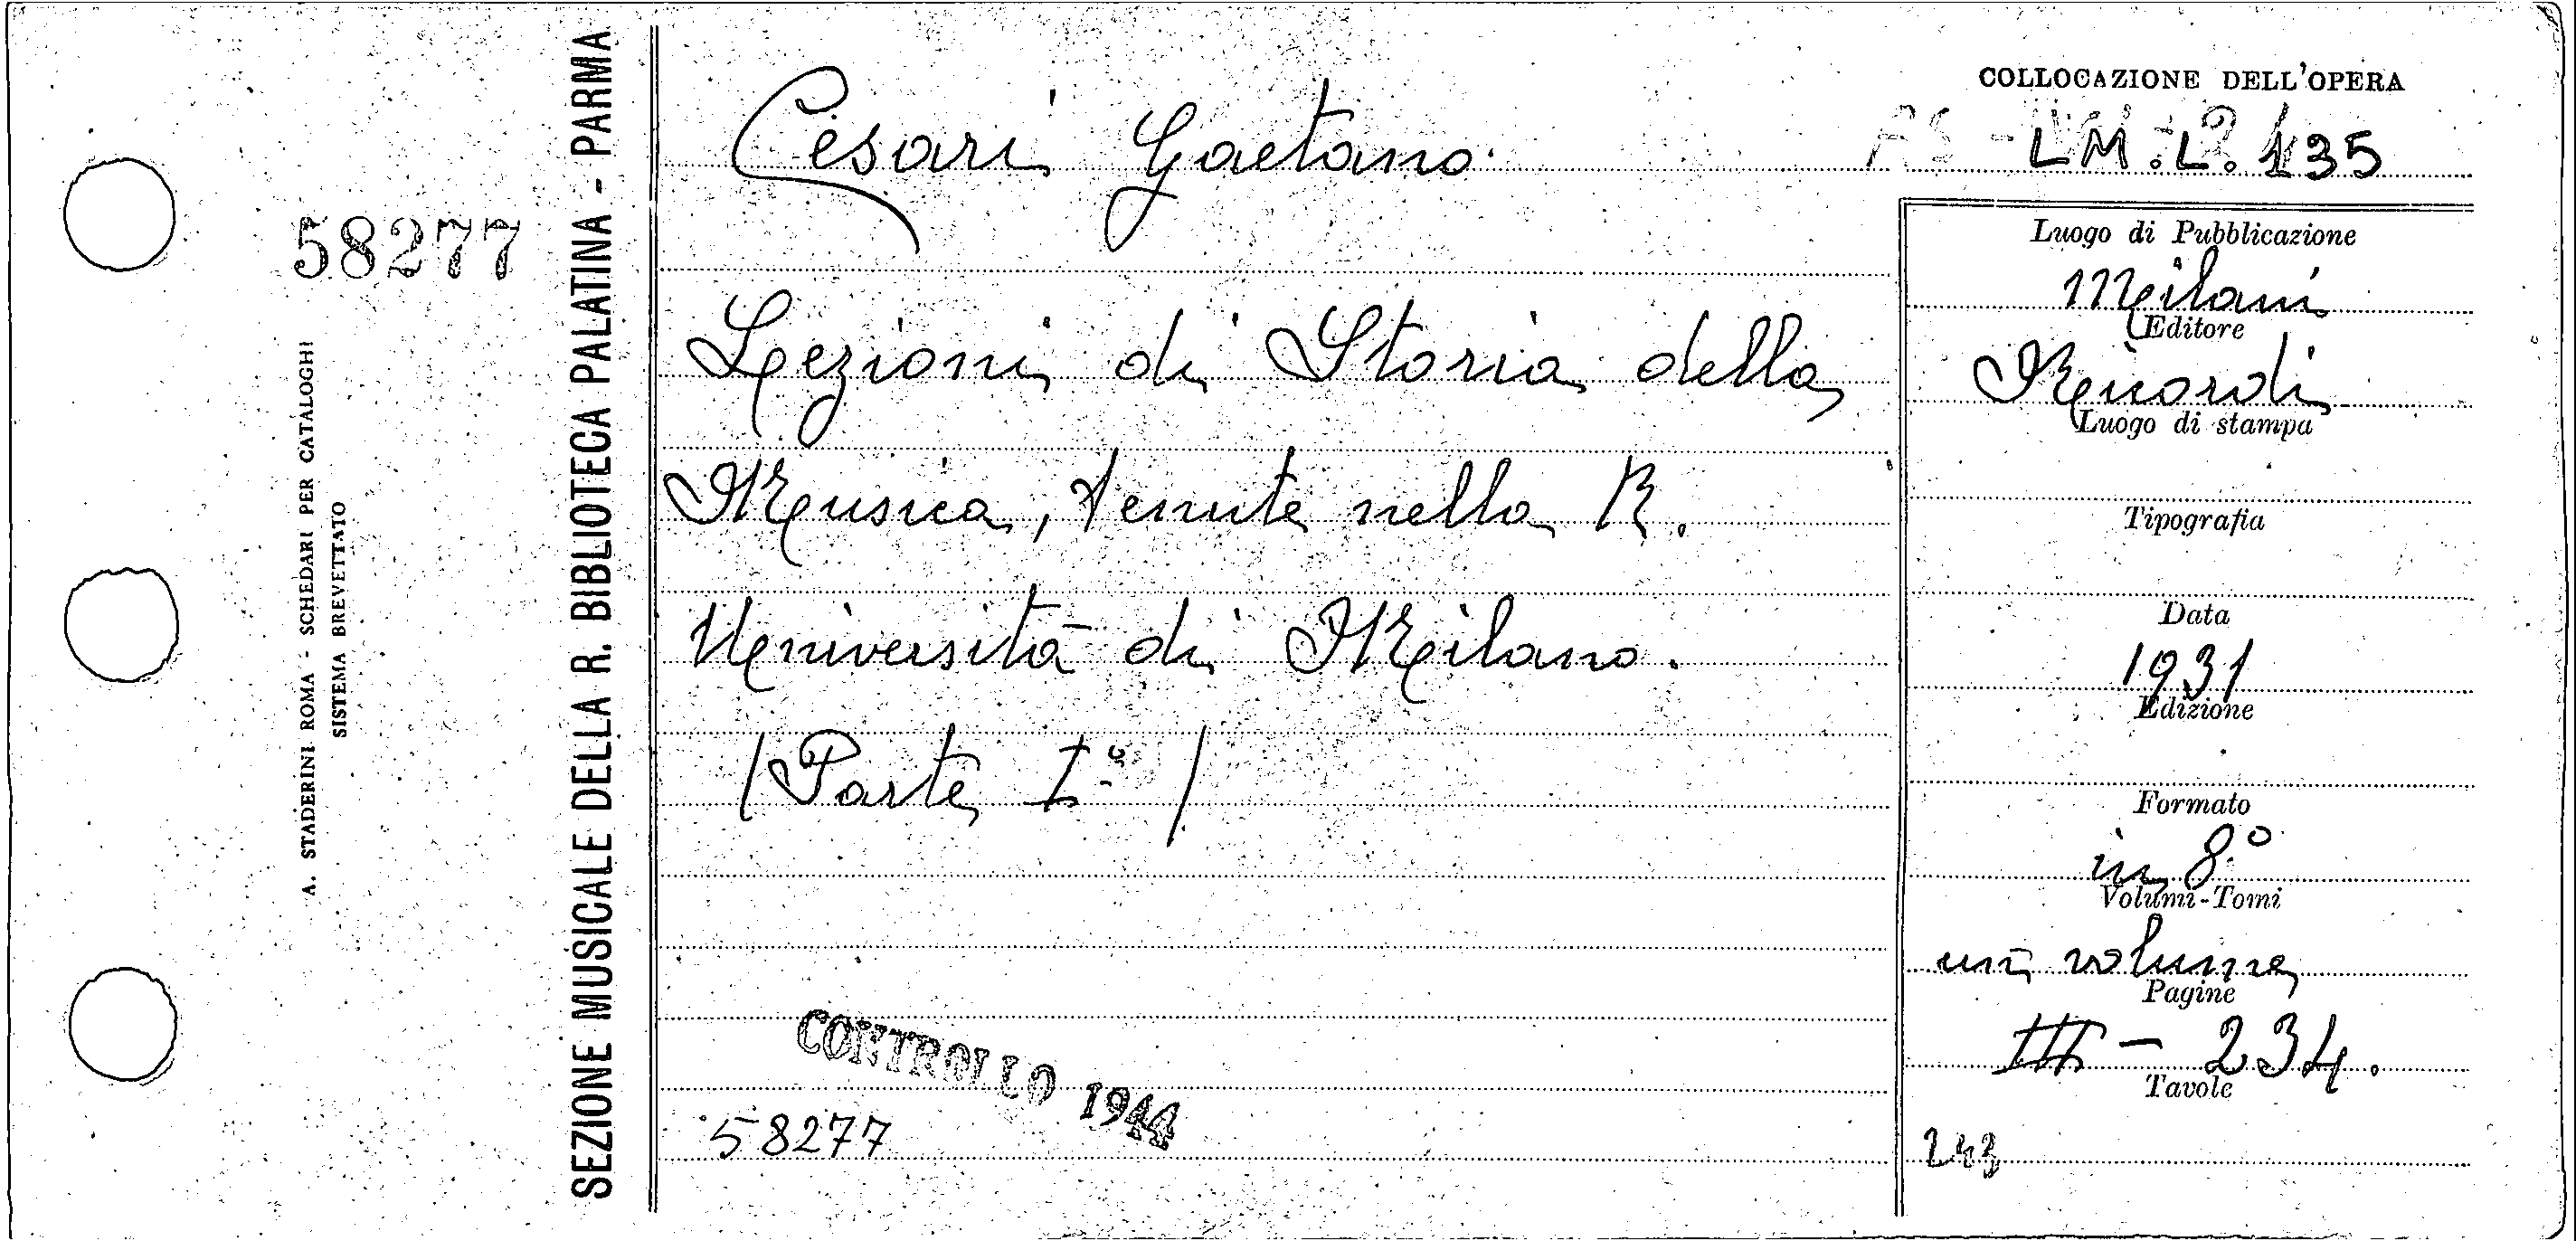 58277
A. STADERINI ROMA - SCHEDARI PER CATALOGHI
SISTEMA BREVETTATO
SEZIONE MUSICALE DELLA R. BIBLIOTECA PALATINA - PARMA
Cesari Gaetano
Lezioni di Storia della
Musica, tenute nella R.
Università di Milano.
(Parte Iª)
CONTROLLO 1944
58277
COLLOCAZIONE DELL'OPERA
LM.L.135
Luogo di Pubblicazione
Milani
Editore
Ricordi
Luogo di stampa
Tipografia
Data
1931
Edizione
Formato
in 8°
Volumi-Tomi
un volume
Pagine
III - 234.
Tavole
243